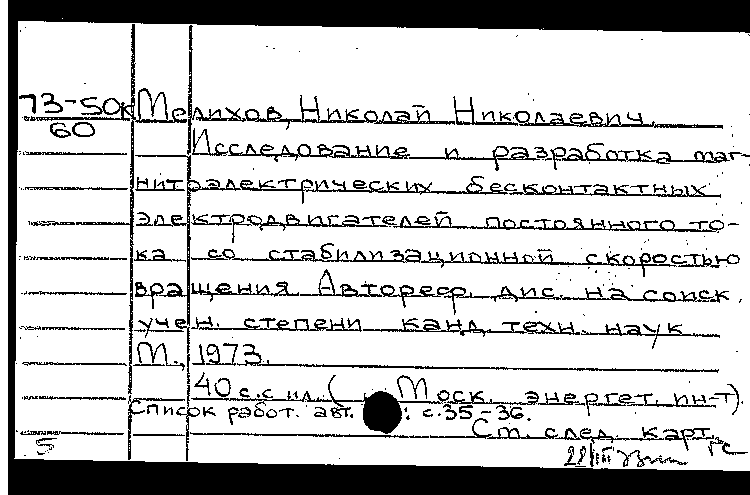 73-50к
60
Мелихов, Николай Николаевич.
Исследование и разработка маг-
нитоэлектрических бесконтактных
электродвигателей постоянного то-
ка со стабилизационной скоростью
вращения. Автореф. дис. на соиск.
учен. степени канд. техн. наук
М., 1973.
40 с. с ил. ( Моск. энергет. ин-т).
Список работ. авт. : с. 35-36.
Ст. след. карт.
5 22/III